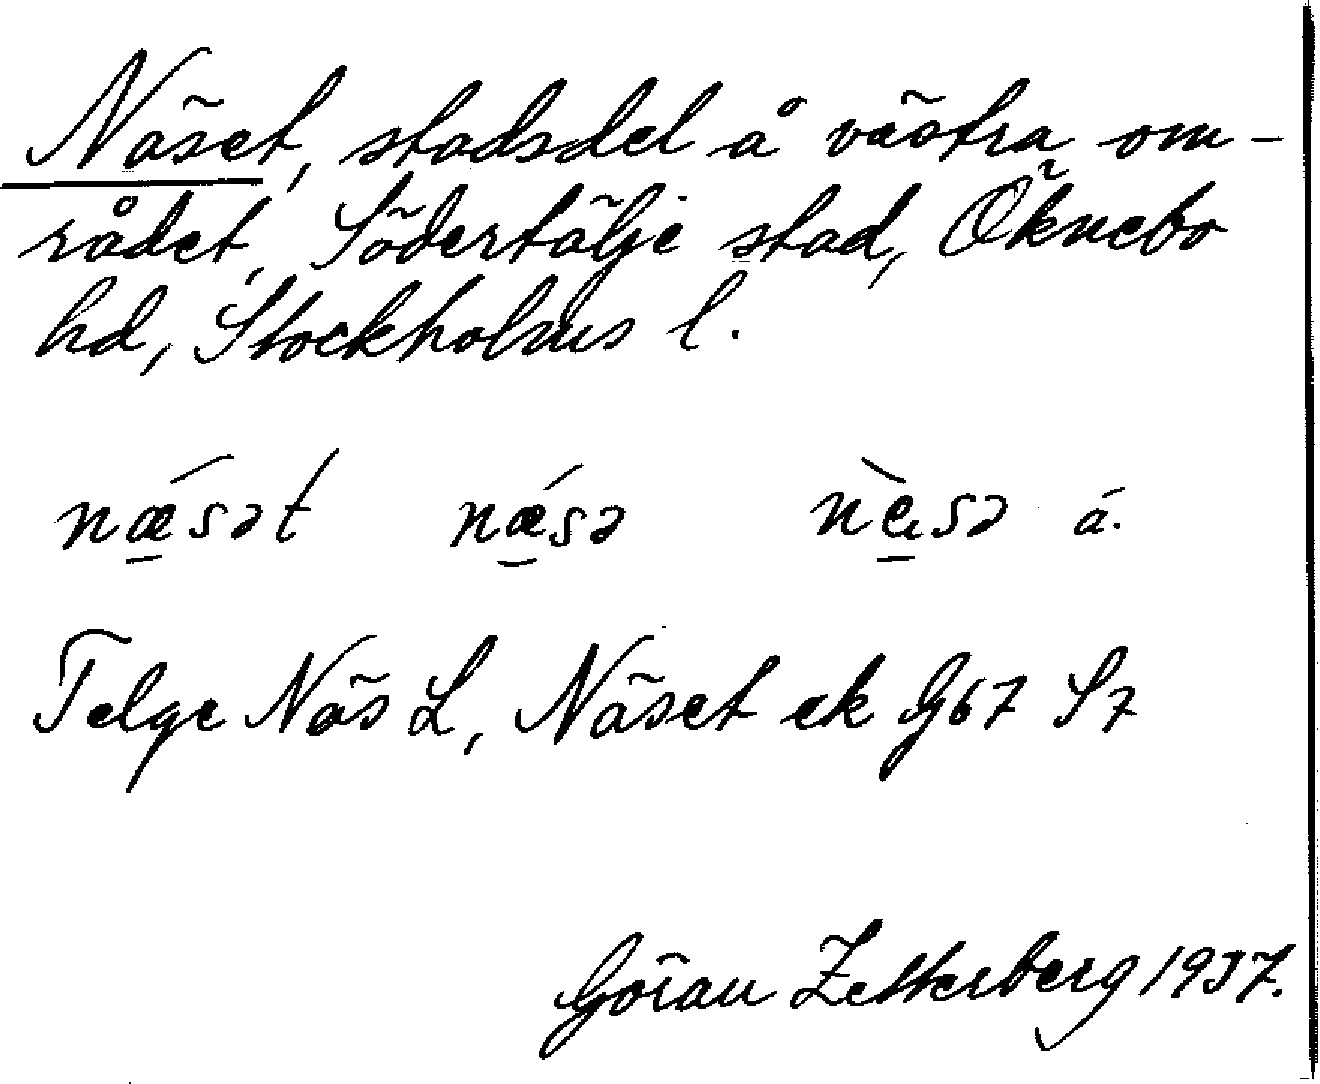 Näset, stadsdel å västra om-
rådet, Södertälje stad, Öknebo
hd, Stockholms l.
nǽ̱sət nǽ̱sə nè̱sə á.
Telge Näs L, Näset ek G67 S7
Göran Zetterberg 1937.